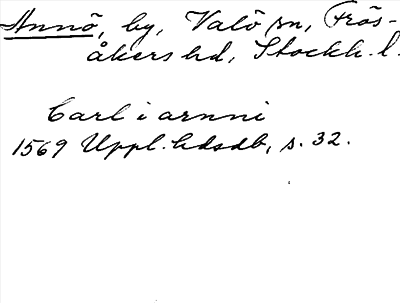 Annö, by, Valö sn, Frös-
åkers hd, Stockh. l.
Carl i arnni
1569 Uppl. hdsdb, s. 32.